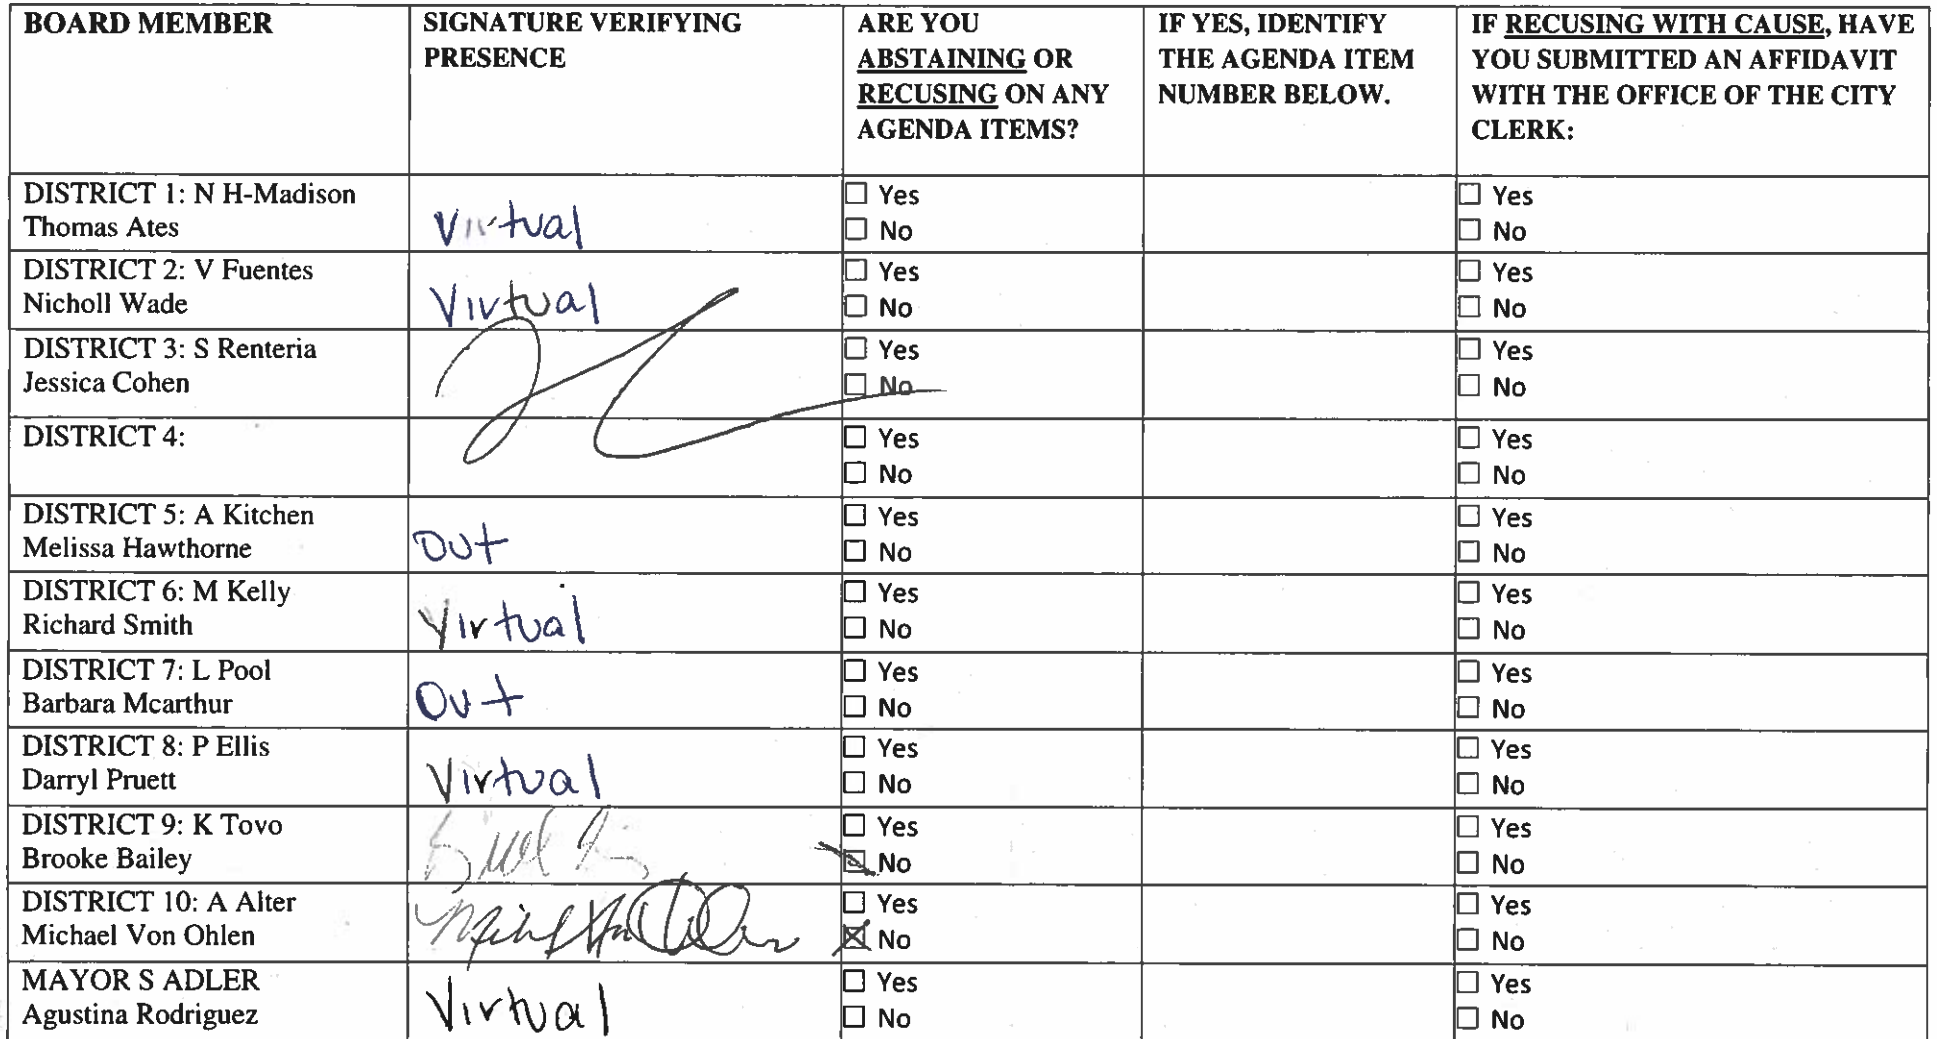 BOARD MEMBER
SIGNATURE VERIFYING
PRESENCE
ARE YOU
ABSTAINING OR
RECUSING ON ANY
AGENDA ITEMS?
IF YES, IDENTIFY
THE AGENDA ITEM
NUMBER BELOW.
IF RECUSING WITH CAUSE, HAVE
YOU SUBMITTED AN AFFIDAVIT
WITH THE OFFICE OF THE CITY
CLERK:
DISTRICT 1: N H-Madison
Thomas Ates
Virtual
☐ Yes
☐ No
☐ Yes
☐ No
DISTRICT 2: V Fuentes
Nicholl Wade
Virtual
☐ Yes
☐ No
☐ Yes
☐ No
DISTRICT 3: S Renteria
Jessica Cohen
☐ Yes
☐ No
☐ Yes
☐ No
DISTRICT 4:
☐ Yes
☐ No
☐ Yes
☐ No
DISTRICT 5: A Kitchen
Melissa Hawthorne
Out
☐ Yes
☐ No
☐ Yes
☐ No
DISTRICT 6: M Kelly
Richard Smith
Virtual
☐ Yes
☐ No
☐ Yes
☐ No
DISTRICT 7: L Pool
Barbara Mcarthur
Out
☐ Yes
☐ No
☐ Yes
☐ No
DISTRICT 8: P Ellis
Darryl Pruett
Virtual
☐ Yes
☐ No
☐ Yes
☐ No
DISTRICT 9: K Tovo
Brooke Bailey
☐ Yes
☒ No
☐ Yes
☐ No
DISTRICT 10: A Alter
Michael Von Ohlen
☐ Yes
☒ No
☐ Yes
☐ No
MAYOR S ADLER
Agustina Rodriguez
Virtual
☐ Yes
☐ No
☐ Yes
☐ No